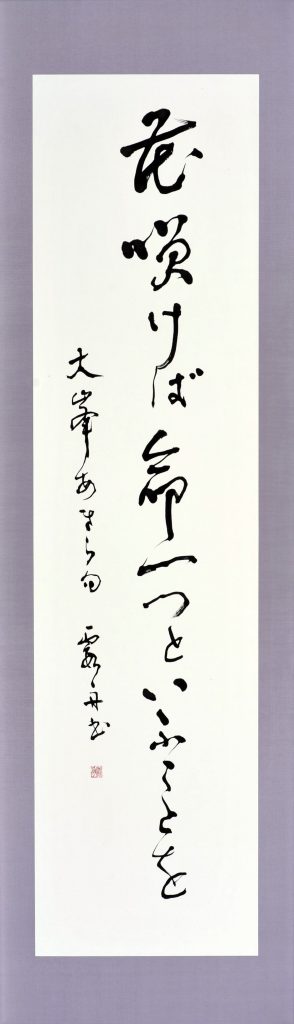 花咲けば命一つといふことを
大峯あきら句 霞舟書